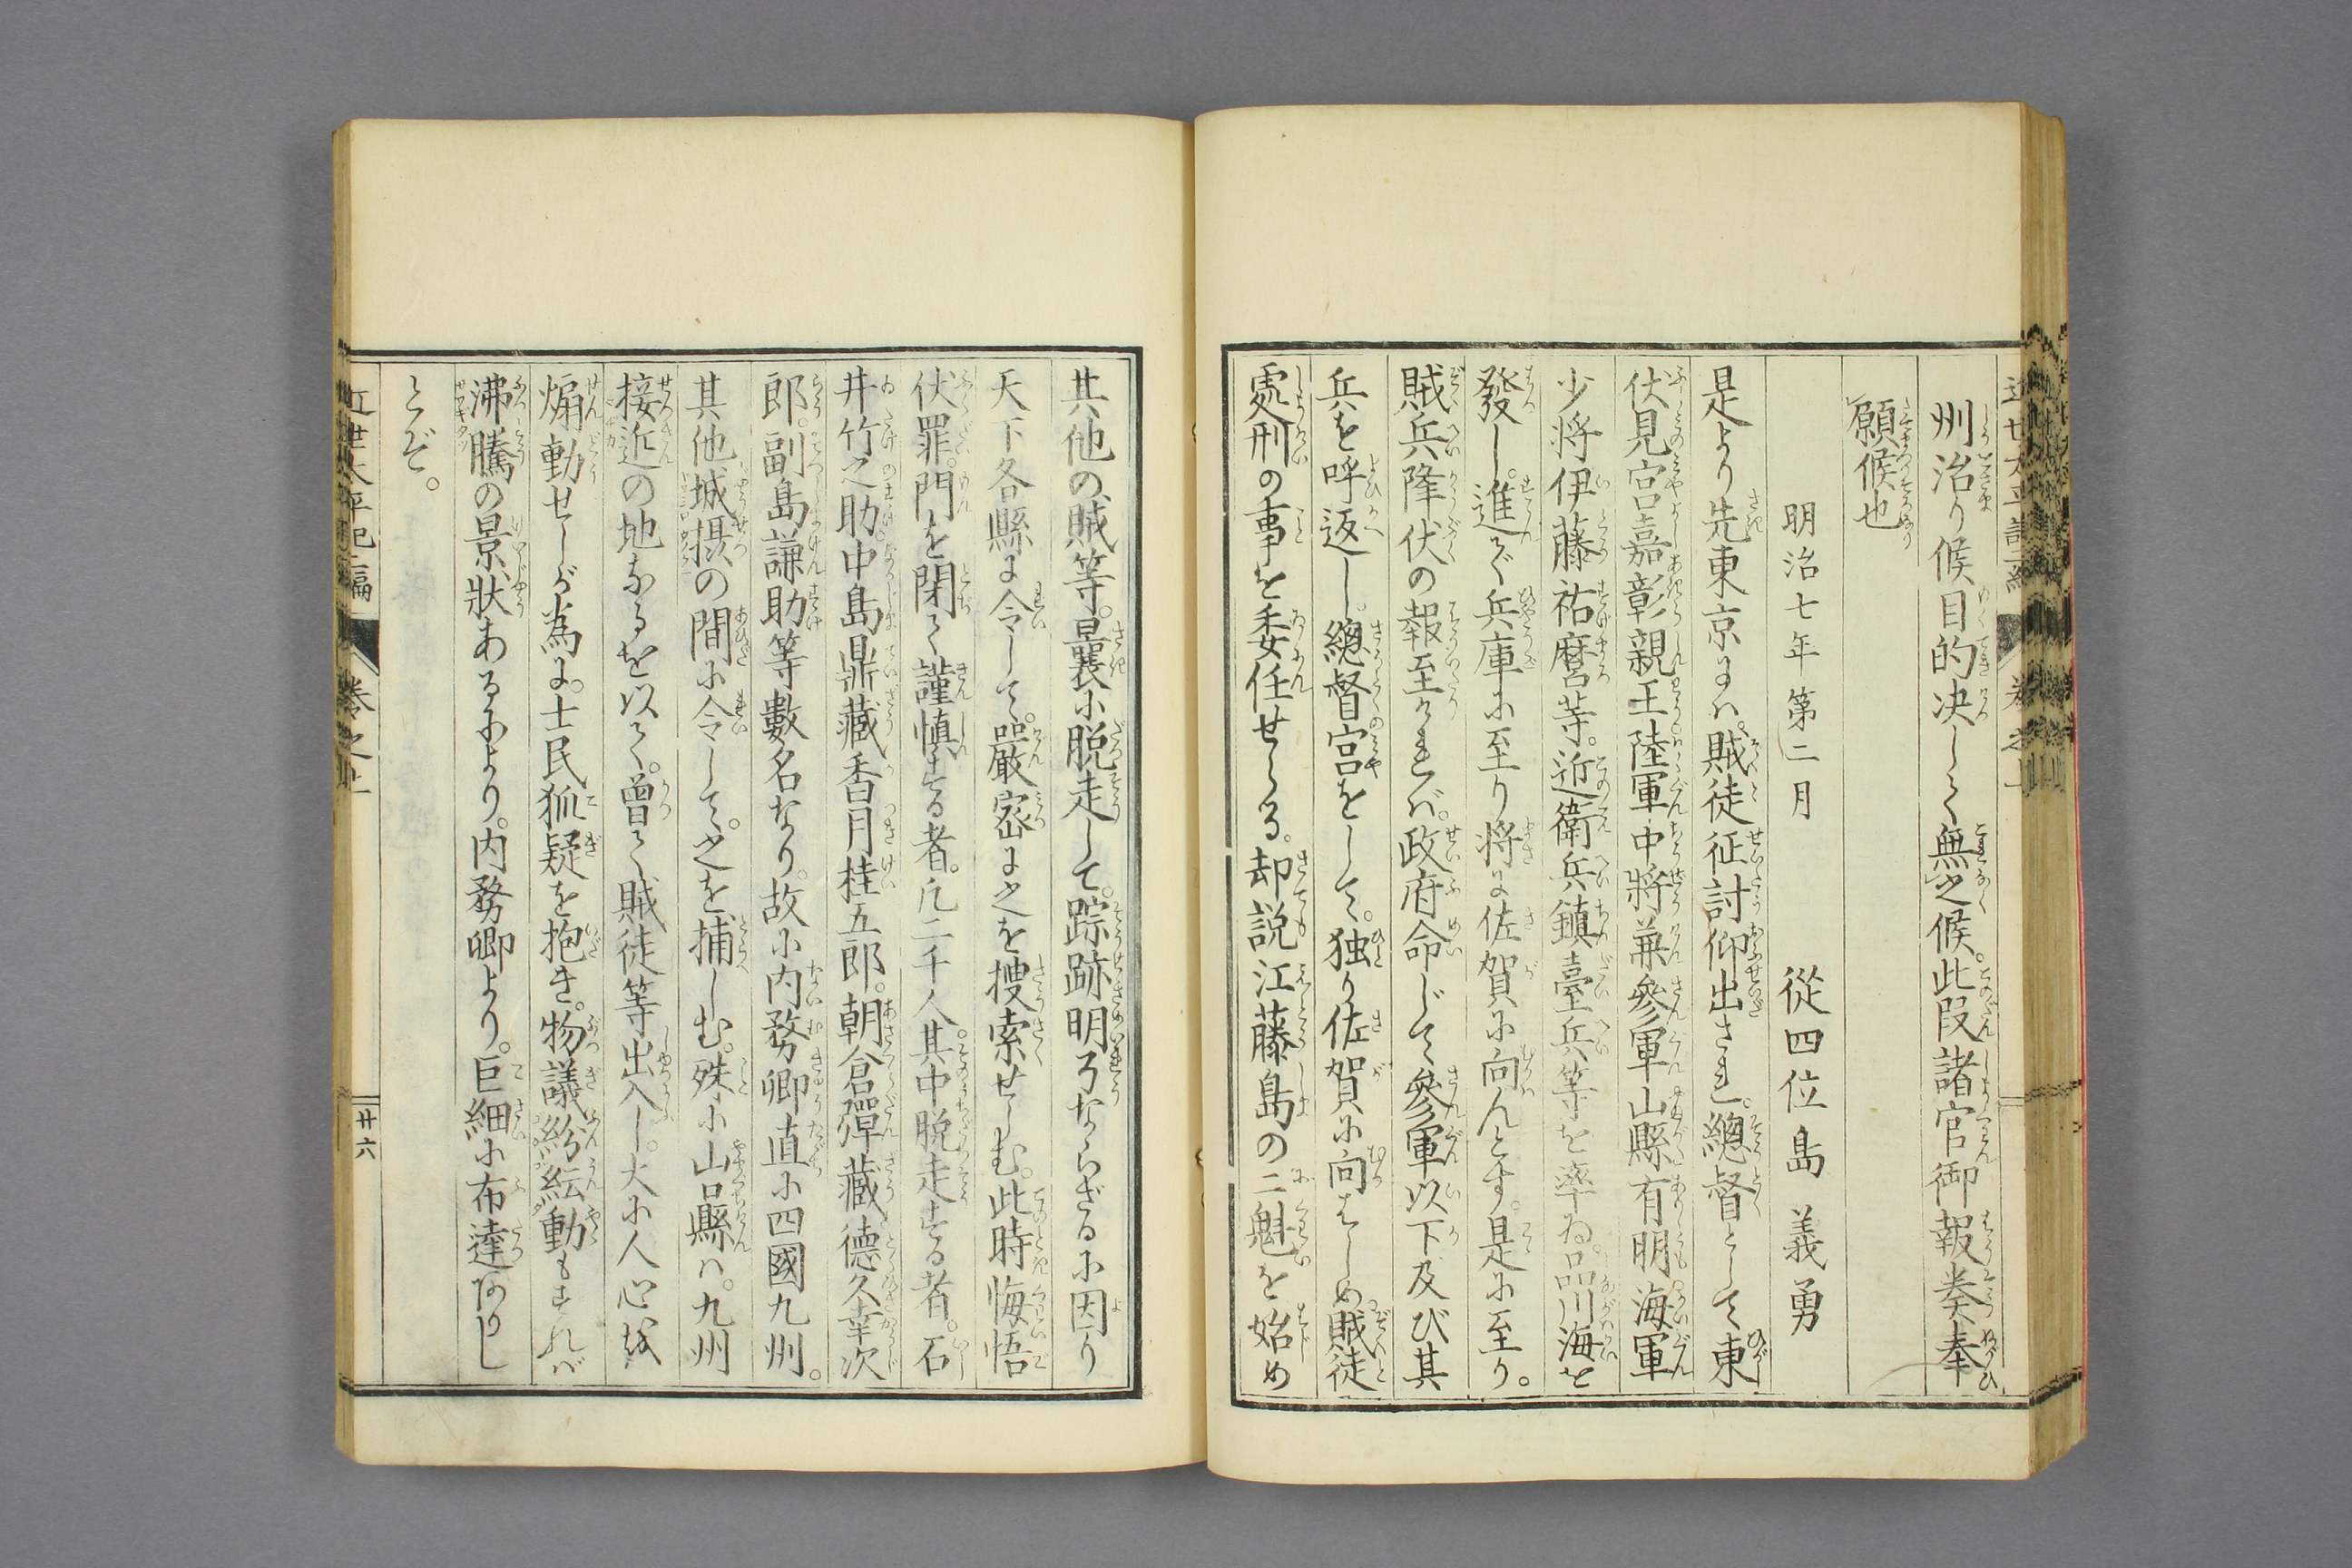 州治り候目的决して無之候。此段諸官御報奏奉
願候也
明治七年第二月　從四位島義勇
是より先東京にハ。賊徒征討仰出され。總督として東
伏見宮嘉彰親王陸軍中將兼參軍山縣有明海軍
少将伊藤祐麿等。近衛兵鎮臺兵等を率ゐ。品川海を
發し。進で兵庫に至り将に佐賀に向んとす。是に至り。
賊兵降伏の報至りけれバ。政府命じて參軍以下及び其
兵を呼返し。總督宮をして。独り佐賀に向はしめ。賊徒
處刑の事を委任せらる。却説江藤島の二魁を始め
其他の賊等。曩に脱走して。踪跡明了ならざるに因り
天下各縣に令して。嚴密に之を捜索せしむ。此時悔悟
伏罪。門を閉て謹慎する者。凢二千人。其中脱走する者。石
井竹之助。中島鼎藏香月桂五郎。朝倉彈藏德久幸次
郎。副島謙助等數名なり。故に内務卿直に四國九州。
其他城摂の間に令して。之を捕しむ。殊に山口縣ハ。九州
接近の地なるを以て。曾て賊徒等出入し。大に人心を
煽動せしが為に。士民狐疑を抱き。物議紛紜動もすれバ
沸騰の景狀あるにより。内務卿より。巨細に布達ありし
とぞ。
近世太平記二編　卷之上　廿六